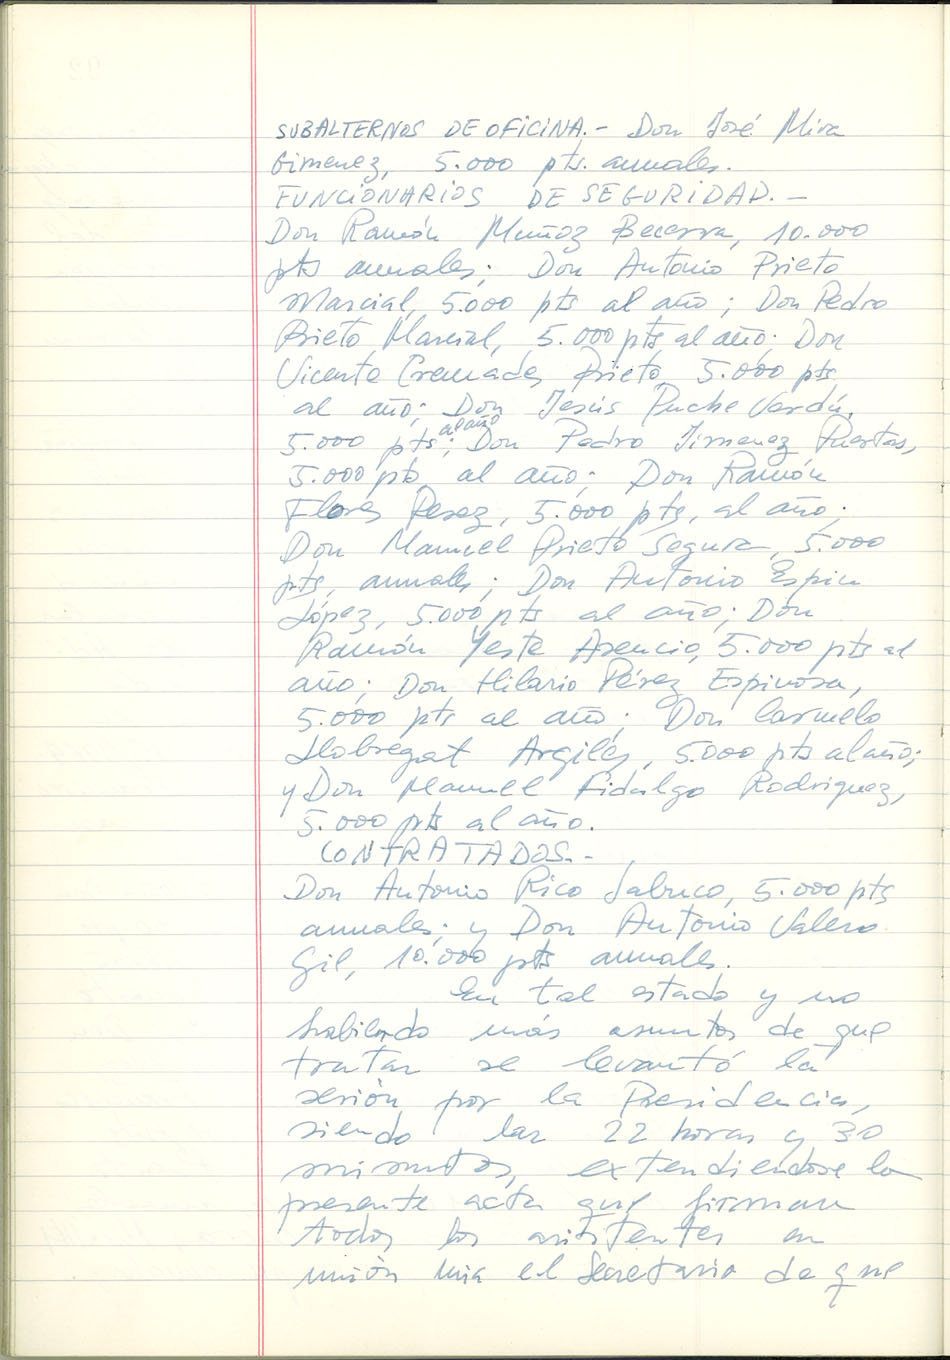 SUBALTERNOS DE OFICINA.- Don José Mira
Gimenez, 5.000 pts. anuales.
FUNCIONARIOS DE SEGURIDAD.-
Don Ramón Muñoz Becerra, 10.000
pts anuales; Don Antonio Prieto
Marcial, 5.000 pts al año; Don Pedro
Prieto Marcial, 5.000 pts al año; Don
Vicente Cremades Prieto 5.000 pts
al año; Don Jesús Puche Verdú,
al año
5.000 pts; Don Pedro Jimenez Puertas,
5.000 pts al año; Don Ramón
Flores Perez, 5.000 pts, al año;
Don Manuel Prieto Segura, 5.000
pts, anuales; Don Antonio Espin
López, 5.000 pts al año; Don
Ramón Yeste Asencio, 5.000 pts al
año; Don Hilario Pérez Espinosa,
5.000 pts al año; Don Carmelo
Llobregat Argilés, 5.000 pts al año;
y Don Manuel Fidalgo Rodriguez,
5.000 pts al año.
CONTRATADOS.-
Don Antonio Rico Sabuco, 5.000 pts
anuales; y Don Antonio Valero
Gil, 10.000 pts anuales.
En tal estado y no
habiendo más asuntos de que
tratar se levantó la
sesión por la Presidencia,
siendo las 22 horas y 30
minutos, extendiendose la
presente acta que firman
todos los asistentes en
unión mia el Secretario de que